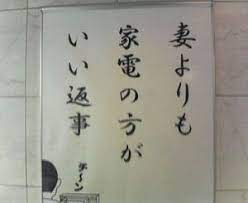 妻よりも
家電の方が
いい返事